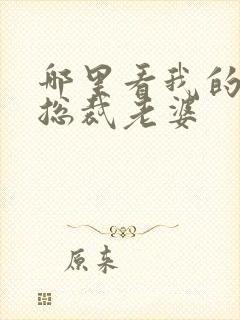 哪里看我的
总裁老婆
原来